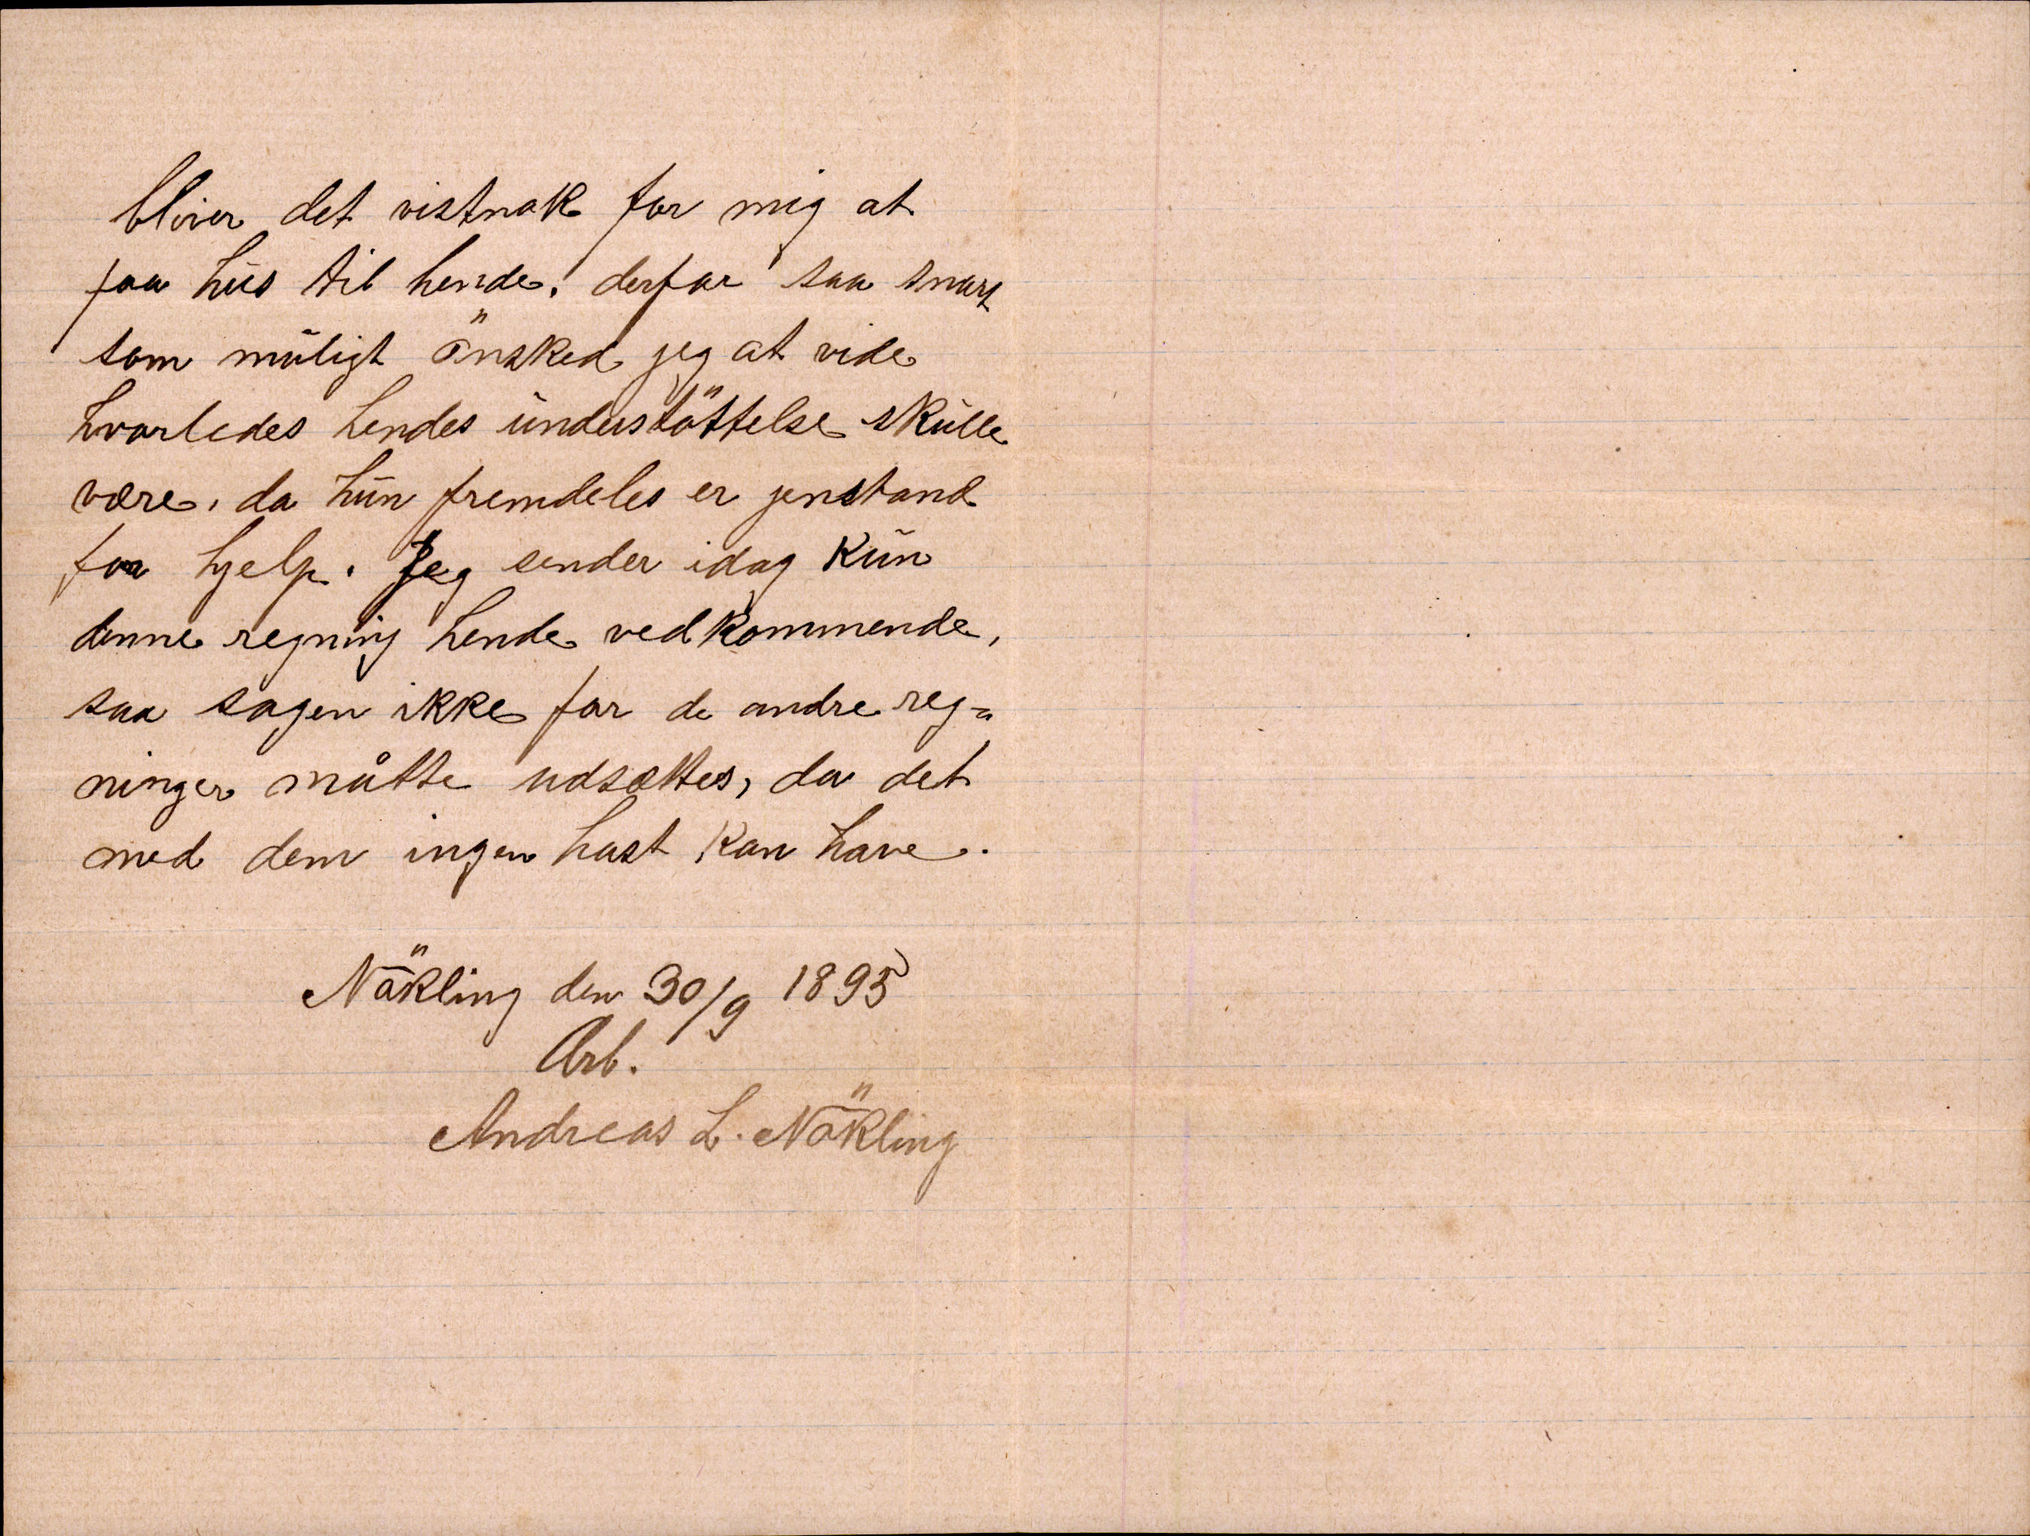 bliver det vistnok for mig at
faa hus til hende. derfor saa snart
som muligt önsked jeg at vide
hvorledes hendes understöttelse skulle
være, da hun fremdeles er jenstand
for hjelp. Jeg sender idag kun
denne regning hende vedkommende,
saa sagen ikke for de andre reg=
ninger måtte udsættes, da det
med dem ingen hast kan have.
Nökling den 30/9 1895
Arb.
Andreas L. Nökling